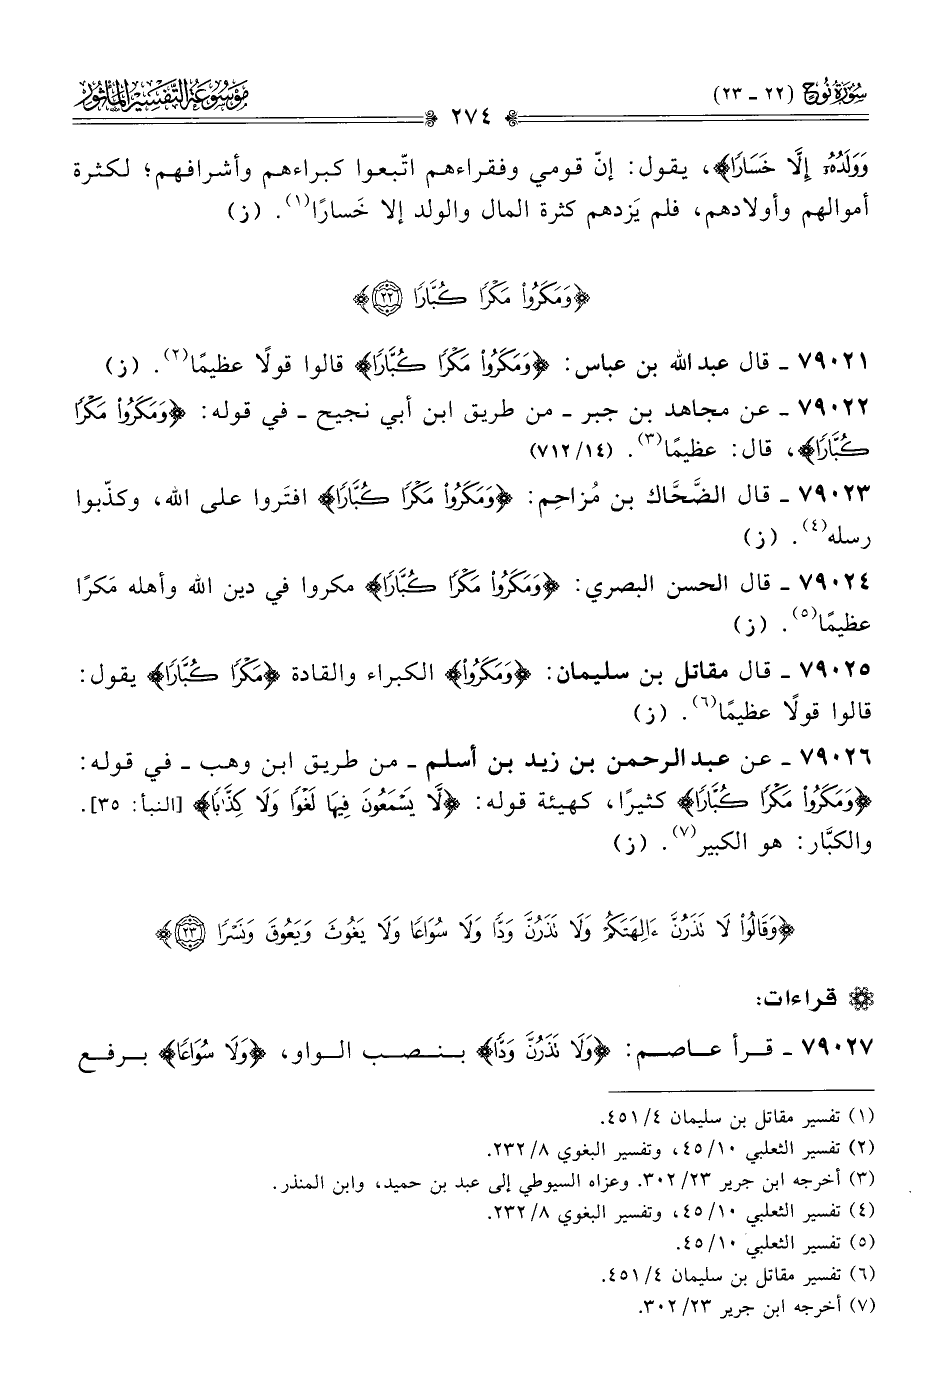 سُورَةُ نُوحٍ (٢٢ - ٢٣)
٢٧٤
مَوْسُوعَةُ التَّفْسِيرِ المَأْثُورِ
وَوَلَدُهُۥٓ إِلَّا خَسَارًا﴾، يقول: إنّ قومي وفقراءهم اتّبعوا كبراءهم وأشرافهم؛ لكثرة
أموالهم وأولادهم، فلم يَزدهم كثرة المال والولد إلا خَسارًا(١). (ز)
﴿وَمَكَرُوا۟ مَكْرًا كُبَّارًا ٢٢﴾
٧٩٠٢١ - قال عبد الله بن عباس: ﴿وَمَكَرُوا۟ مَكْرًا كُبَّارًا﴾ قالوا قولًا عظيمًا(٢). (ز)
٧٩٠٢٢ - عن مجاهد بن جبر - من طريق ابن أبي نجيح - في قوله: ﴿وَمَكَرُوا۟ مَكْرًا
كُبَّارًا﴾، قال: عظيمًا(٣). (٧١٢/١٤)
٧٩٠٢٣ - قال الضَّحَّاك بن مُزاحِم: ﴿وَمَكَرُوا۟ مَكْرًا كُبَّارًا﴾ افتَروا على الله، وكذّبوا
رسله(٤). (ز)
٧٩٠٢٤ - قال الحسن البصري: ﴿وَمَكَرُوا۟ مَكْرًا كُبَّارًا﴾ مكروا في دين الله وأهله مَكرًا
عظيمًا(٥). (ز)
٧٩٠٢٥ - قال مقاتل بن سليمان: ﴿وَمَكَرُوا۟﴾ الكبراء والقادة ﴿مَكْرًا كُبَّارًا﴾ يقول:
قالوا قولًا عظيمًا(٦). (ز)
٧٩٠٢٦ - عن عبد الرحمن بن زيد بن أسلم - من طريق ابن وهب - في قوله:
﴿وَمَكَرُوا۟ مَكْرًا كُبَّارًا﴾ كثيرًا، كهيئة قوله: ﴿لَّا يَسْمَعُونَ فِيهَا لَغْوًا وَلَا كِذَّٰبًا﴾ [النبأ: ٣٥].
والكبَّار: هو الكبير(٧). (ز)
﴿وَقَالُوا۟ لَا تَذَرُنَّ ءَالِهَتَكُمْ وَلَا تَذَرُنَّ وَدًّا وَلَا سُوَاعًا وَلَا يَغُوثَ وَيَعُوقَ وَنَسْرًا ٢٣﴾
قراءات:
٧٩٠٢٧ - قرأ عاصم: ﴿وَلَا تَذَرُنَّ وَدًّا﴾ بنصب الواو، ﴿وَلَا سُوَاعًا﴾ برفع
(١) تفسير مقاتل بن سليمان ٤/ ٤٥١.
(٢) تفسير الثعلبي ١٠/ ٤٥، وتفسير البغوي ٨/ ٢٣٢.
(٣) أخرجه ابن جرير ٢٣/ ٣٠٢. وعزاه السيوطي إلى عبد بن حميد، وابن المنذر.
(٤) تفسير الثعلبي ١٠/ ٤٥، وتفسير البغوي ٨/ ٢٣٢.
(٥) تفسير الثعلبي ١٠/ ٤٥.
(٦) تفسير مقاتل بن سليمان ٤/ ٤٥١.
(٧) أخرجه ابن جرير ٢٣/ ٣٠٢.